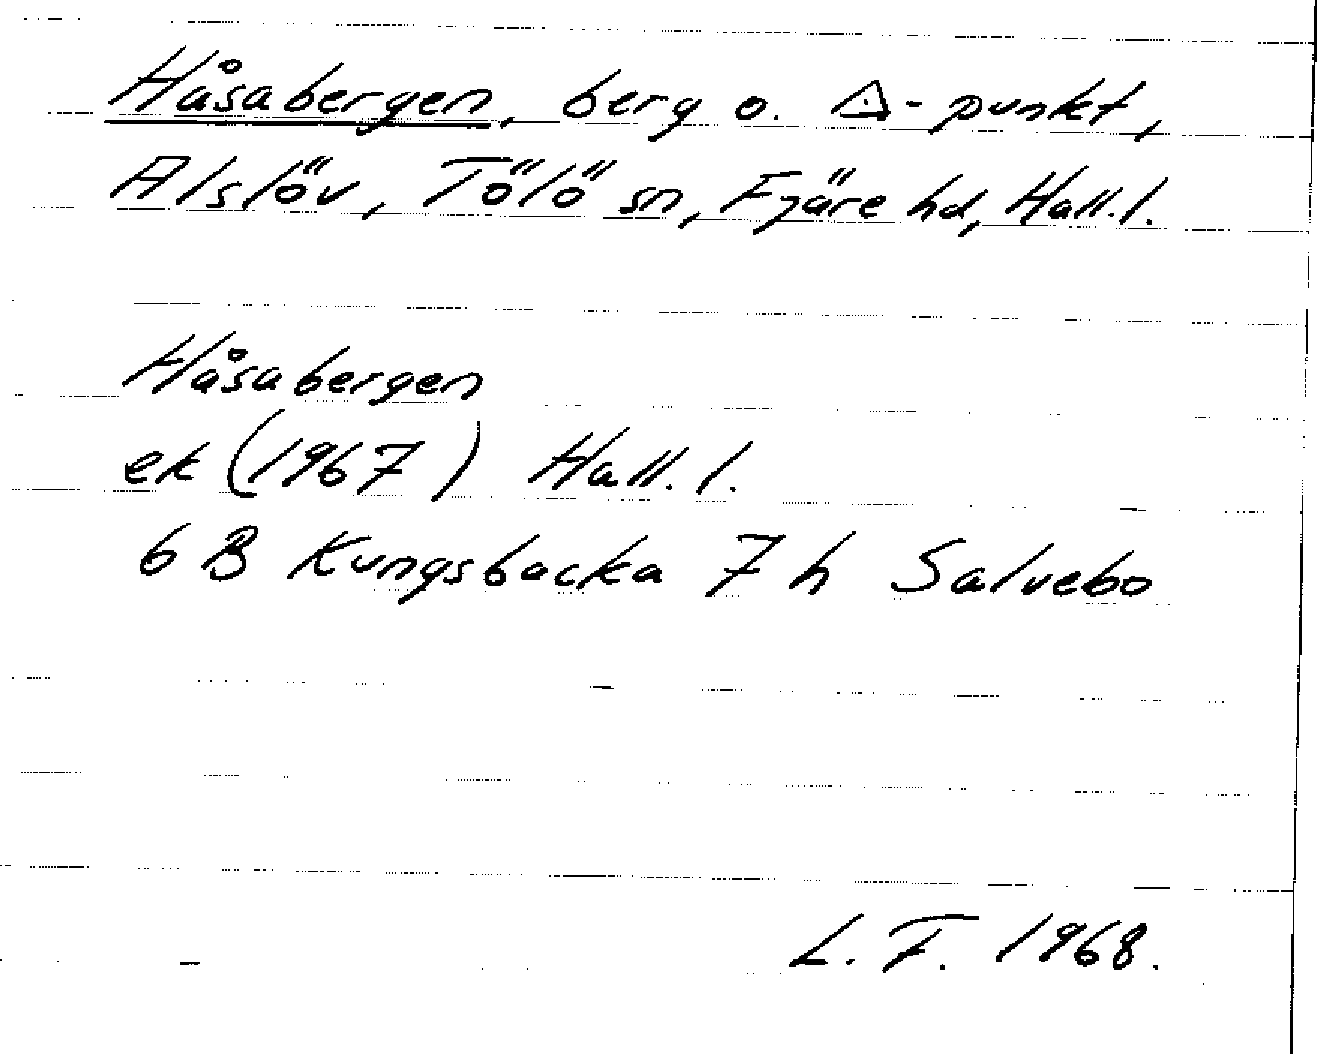 Håsabergen, berg o. △-punkt,
Alslöv, Tölö sn, Fjäre hd, Hall.l.
Håsabergen
ek (1967) Hall.l.
6B Kungsbacka 7h Salvebo
L.F. 1968.